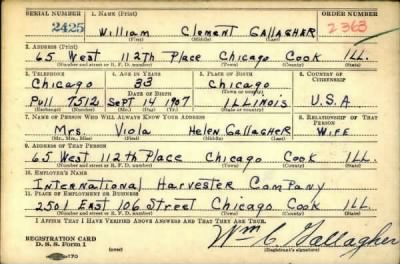 SERIAL NUMBER 1. NAME (Print) ORDER NUMBER
2425 William Clement GALLAGHER 2363
(First) (Middle) (Last)
2. ADDRESS (Print)
65 West 112th Place Chicago Cook ILL.
(Number and street or R. F. D. number) (Town) (County) (State)
3. TELEPHONE 4. AGE IN YEARS 5. PLACE OF BIRTH 6. COUNTRY OF CITIZENSHIP
Chicago 33 Chicago
DATE OF BIRTH (Town or county)
Pull 7512 Sept 14 1907 ILLINOIS U.S.A
(Exchange) (Number) (Mo.) (Day) (Yr.) (State or country)
7. NAME OF PERSON WHO WILL ALWAYS KNOW YOUR ADDRESS 8. RELATIONSHIP OF THAT PERSON
Mrs. Viola Helen Gallagher WIFE
(Mr., Mrs., Miss) (First) (Middle) (Last)
9. ADDRESS OF THAT PERSON
65 West 112th Place Chicago Cook ILL.
(Number and street or R. F. D. number) (Town) (County) (State)
10. EMPLOYER'S NAME
International Harvester Company
11. PLACE OF EMPLOYMENT OR BUSINESS
2501 East 106 Street Chicago Cook ILL
(Number and street or R. F. D. number) (Town) (County) (State)
I AFFIRM THAT I HAVE VERIFIED ABOVE ANSWERS AND THAT THEY ARE TRUE.
REGISTRATION CARD
D. S. S. Form 1 (over) Wm C Gallagher
(Registrant's signature)